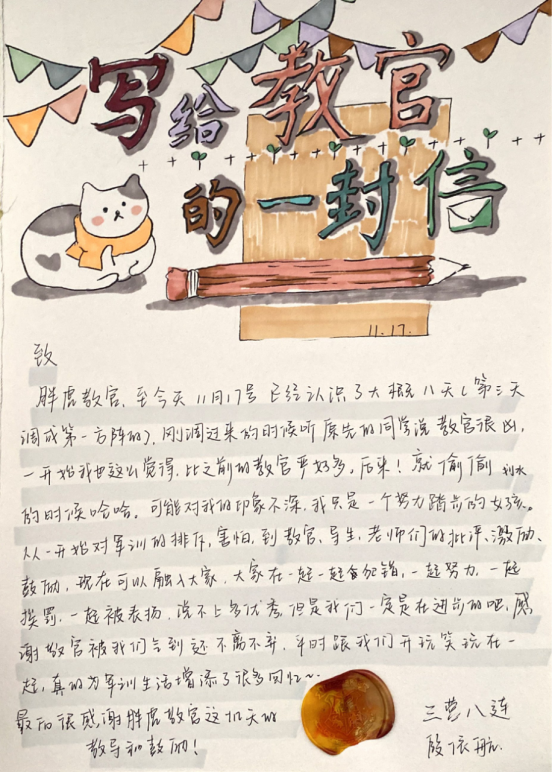 写给教官
的一封信
11.17.
致
胖虎教官,至今天11月17号已经认识了大概八天(第三天
调成第一方阵的),刚调过来的时候听原先的同学说教官很凶,
一开始我也这么觉得,比之前的教官严好多,后来!就偷偷
的时候哈哈。可能对我的印象不深,我只是一个努力踏步的女孩。
从一开始对军训的排斥,害怕,到教官、导生,老师们的批评、激励、
鼓励,现在可以融入大家,大家在一起一起犯错,一起努力,一起
挨罚,一起被表扬,说不上多优秀,但是我们一定是在进步的吧,感
谢教官被我们气到还不离不弃,平时跟我们开玩笑玩在一
起,真的为军训生活增添了很多回忆~
最后很感谢胖虎教官这几天的
教导和鼓励!
三营八连
殷依航